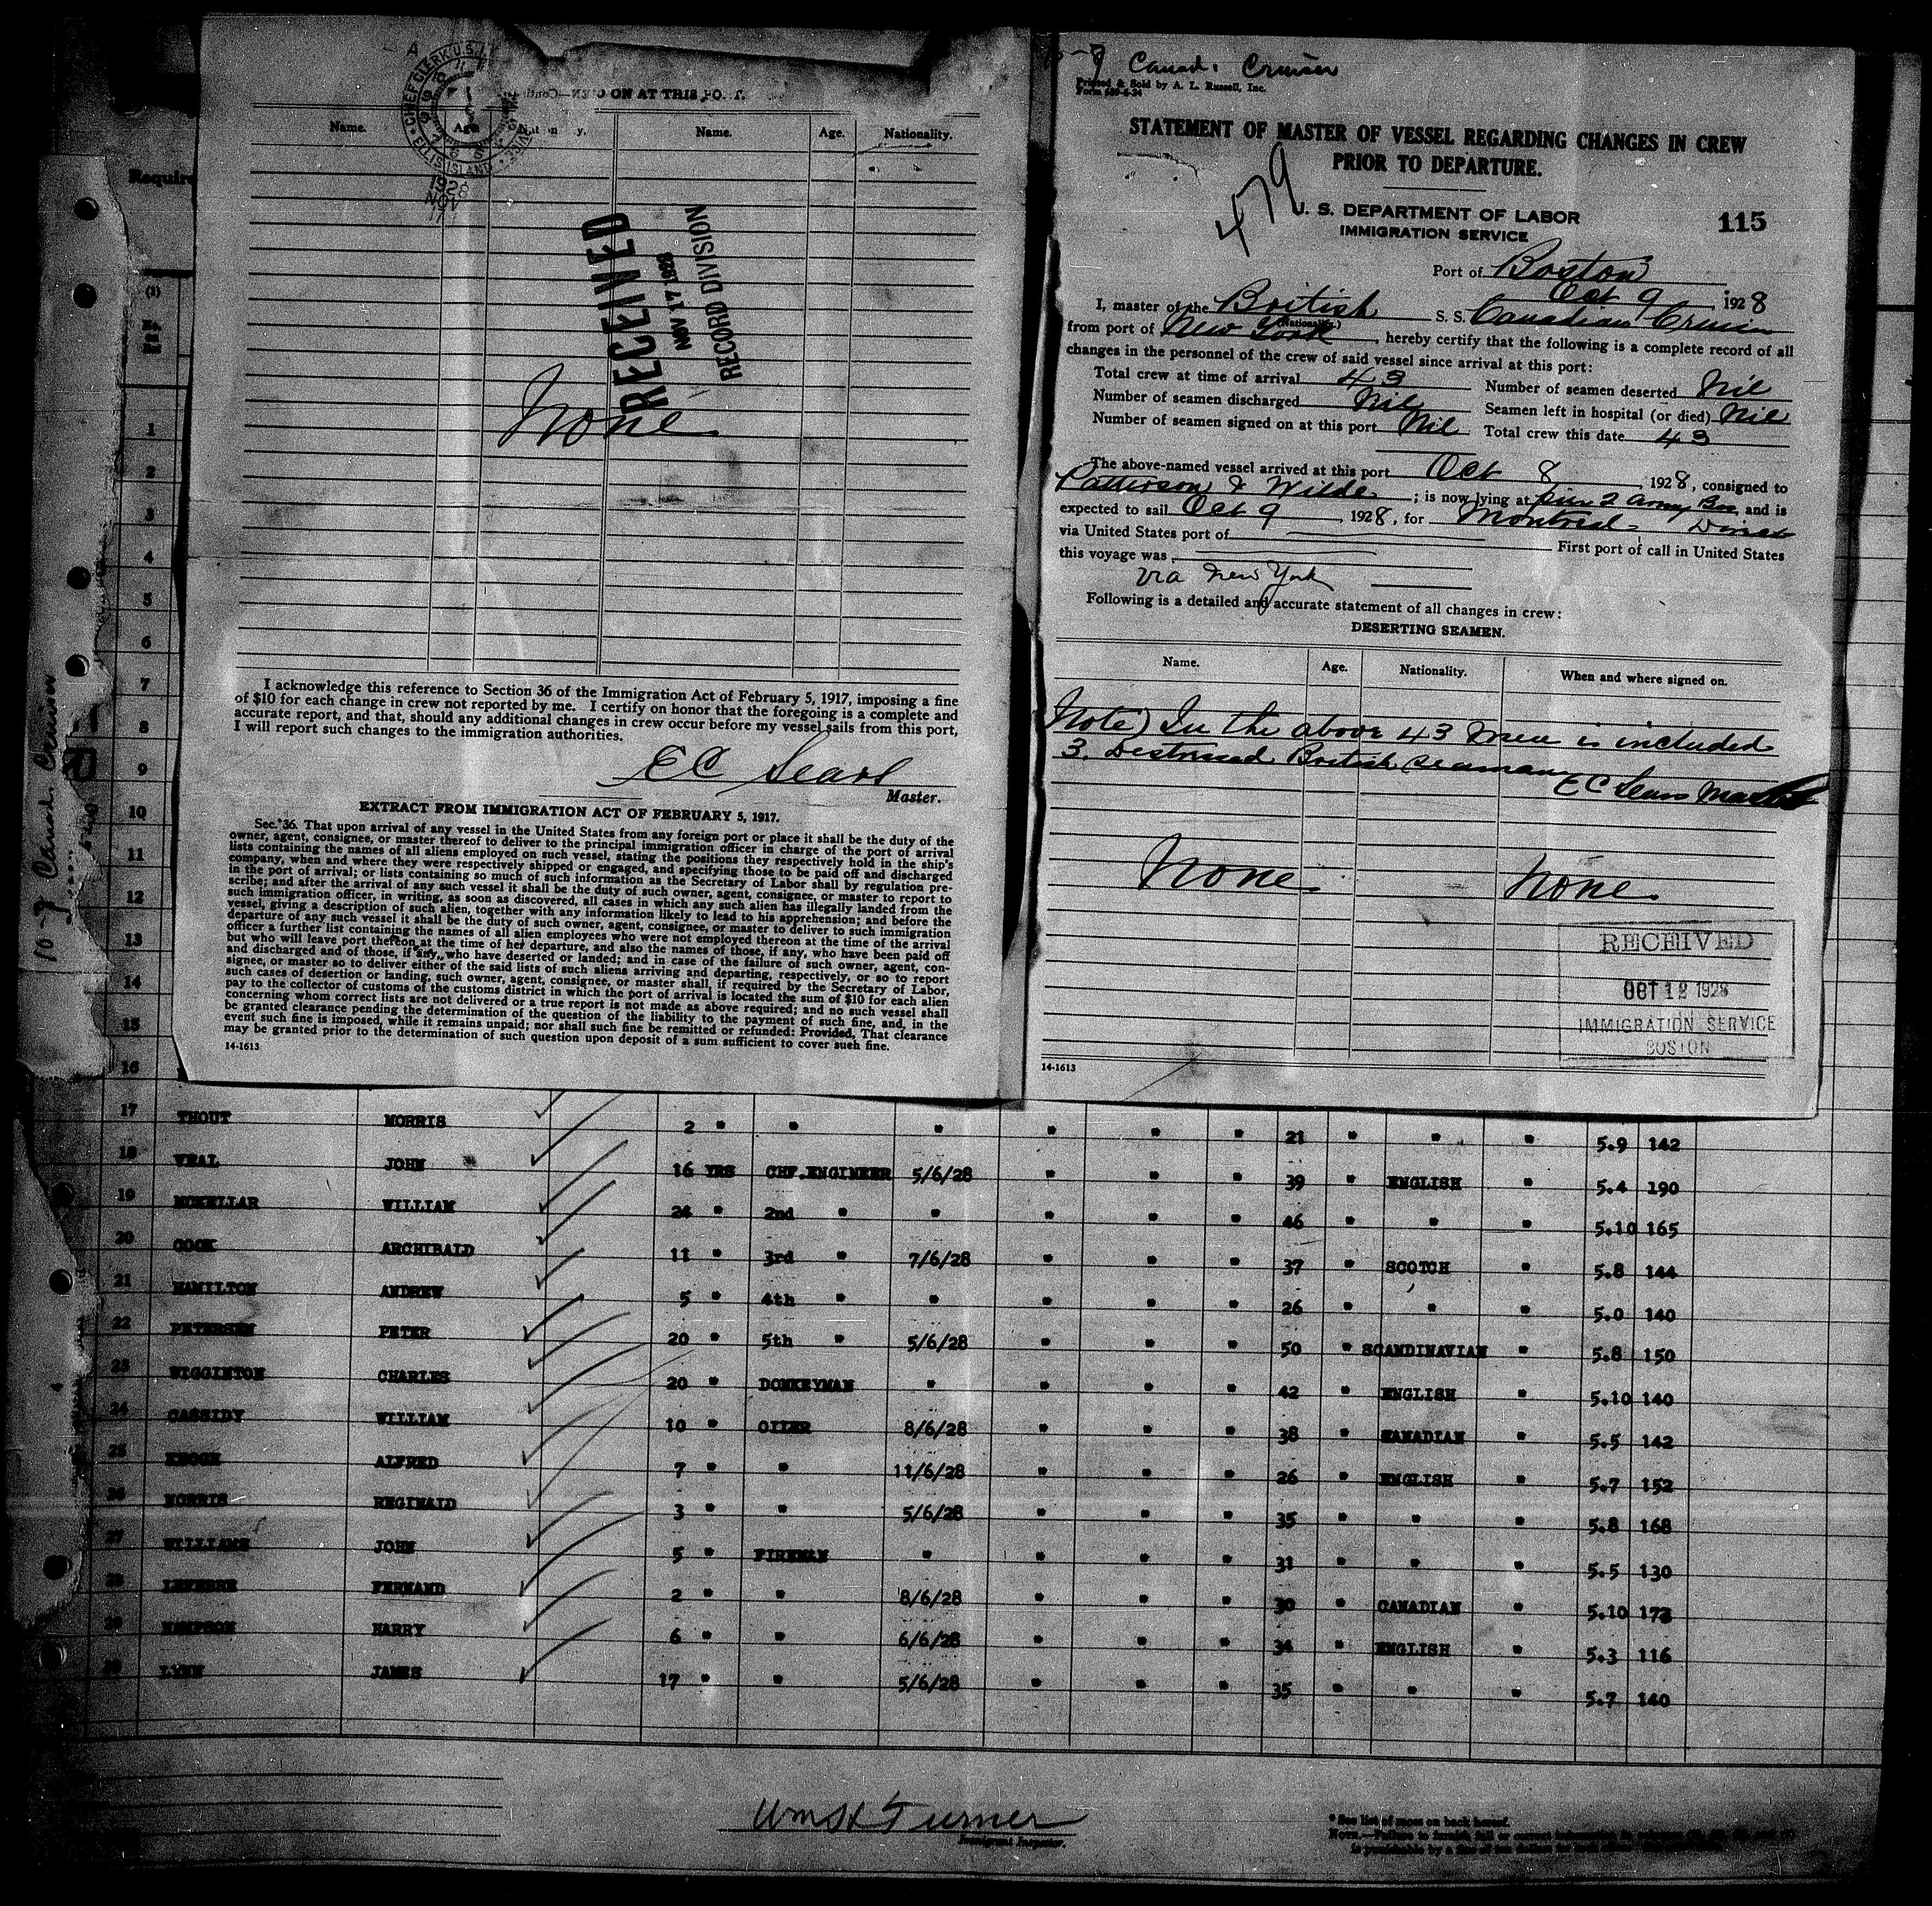 CHIEF CLERK U.S.
ELLIS ISLAND
1928
NOV
17
ON AT THIS PO
Name. Age Name. Age. Nationality.
RECEIVED
NOV 17 1928
RECORD DIVISION
None
I acknowledge this reference to Section 36 of the Immigration Act of February 5, 1917, imposing a fine
of $10 for each change in crew not reported by me. I certify on honor that the foregoing is a complete and
accurate report, and that, should any additional changes in crew occur before my vessel sails from this port,
I will report such changes to the immigration authorities.
E C Sears
Master.
EXTRACT FROM IMMIGRATION ACT OF FEBRUARY 5, 1917.
Sec. 36. That upon arrival of any vessel in the United States from any foreign port or place it shall be the duty of the
owner, agent, consignee, or master thereof to deliver to the principal immigration officer in charge of the port of arrival
lists containing the names of all aliens employed on such vessel, stating the positions they respectively hold in the ship's
company, when and where they were respectively shipped or engaged, and specifying those to be paid off and discharged
in the port of arrival; or lists containing so much of such information as the Secretary of Labor shall by regulation pre-
scribe; and after the arrival of any such vessel it shall be the duty of such owner, agent, consignee, or master to report to
such immigration officer, in writing, as soon as discovered, all cases in which any such alien has illegally landed from the
vessel, giving a description of such alien, together with any information likely to lead to his apprehension; and before the
departure of any such vessel it shall be the duty of such owner, agent, consignee, or master to deliver to such immigration
officer a further list containing the names of all alien employees who were not employed thereon at the time of the arrival
but who will leave port thereon at the time of her departure, and also the names of those, if any, who have been paid off
and discharged and of those, if any, who have deserted or landed; and in case of the failure of such owner, agent, con-
signee, or master so to deliver either of the said lists of such aliens arriving and departing, respectively, or so to report
such cases of desertion or landing, such owner, agent, consignee, or master shall, if required by the Secretary of Labor,
pay to the collector of customs of the customs district in which the port of arrival is located the sum of $10 for each alien
concerning whom correct lists are not delivered or a true report is not made as above required; and no such vessel shall
be granted clearance pending the determination of the question of the liability to the payment of such fine, and, in the
event such fine is imposed, while it remains unpaid; nor shall such fine be remitted or refunded: Provided, That clearance
may be granted prior to the determination of such question upon deposit of a sum sufficient to cover such fine.
14-1613
Canad. Cruiser
Printed & Sold by A. L. Russell, Inc.
STATEMENT OF MASTER OF VESSEL REGARDING CHANGES IN CREW
PRIOR TO DEPARTURE.
479
U. S. DEPARTMENT OF LABOR
IMMIGRATION SERVICE
115
Port of Boston
Oct 9, 1928
I, master of the British S. S. Canadian Cruiser
(Nationality.)
from port of New York, hereby certify that the following is a complete record of all
changes in the personnel of the crew of said vessel since arrival at this port:
Total crew at time of arrival 43 Number of seamen deserted Nil
Number of seamen discharged Nil Seamen left in hospital (or died) Nil
Number of seamen signed on at this port Nil Total crew this date 43
The above-named vessel arrived at this port Oct 8, 1928, consigned to
Patterson & Wilde; is now lying at pier 2 Army Bse, and is
expected to sail Oct 9, 1928, for Montreal - Direct
via United States port of First port of call in United States
this voyage was
via New York
Following is a detailed and accurate statement of all changes in crew:
DESERTING SEAMEN.
Name. Age. Nationality. When and where signed on.
Note) In the above 43 men is included
3. Distressed British Seamen
E C Sears Master
None. None.
RECEIVED
OCT 12 1928
IMMIGRATION SERVICE
BOSTON
14-1613
Require
(1)
10-9 Canad. Cruiser
1
2
3
4
5
6
7
8
9
10
11
12
13
14
15
16
17 THOUT MORRIS 2 " " " " " " 21 " " " 5.9 142
18 VEAL JOHN 16 YRS CHF.ENGINEER 5/6/28 " " " 39 " ENGLISH " 5.4 190
19 MCKELLAR WILLIAM 24 " 2nd " " " " " 46 " " " 5.10 165
20 COOK ARCHIBALD 11 " 3rd " 7/6/28 " " " 37 " SCOTCH " 5.8 144
21 HAMILTON ANDREW 5 " 4th " " " " " 26 " " " 5.0 140
22 PETERSEN PETER 20 " 5th " 5/6/28 " " " 50 " SCANDINAVIAN " 5.8 150
23 WIGGINTON CHARLES 20 " DONKEYMAN " " " " 42 " ENGLISH " 5.10 140
24 CASSIDY WILLIAM 10 " OILER 8/6/28 " " " 38 " CANADIAN " 5.5 142
25 KEOGH ALFRED 7 " " 11/6/28 " " " 26 " ENGLISH " 5.7 152
26 NORRIS REGINALD 3 " " 5/6/28 " " " 35 " " " 5.8 168
27 WILLIAMS JOHN 5 " FIREMAN " " " " 31 " " " 5.5 130
28 LEFEBRE FERNAND 2 " " 8/6/28 " " " 30 " CANADIAN " 5.10 173
29 HARRY 6 " " 6/6/28 " " " 34 " ENGLISH " 5.3 116
30 LYNN JAMES 17 " " 5/6/28 " " " 35 " " " 5.7 140
Wm H Turner
Immigrant Inspector.
* See list of races on back hereof.